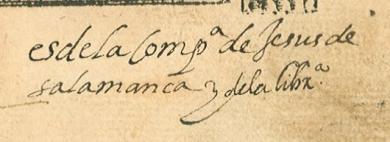 esdela Compª de Jesus de
salamanca y dela librª